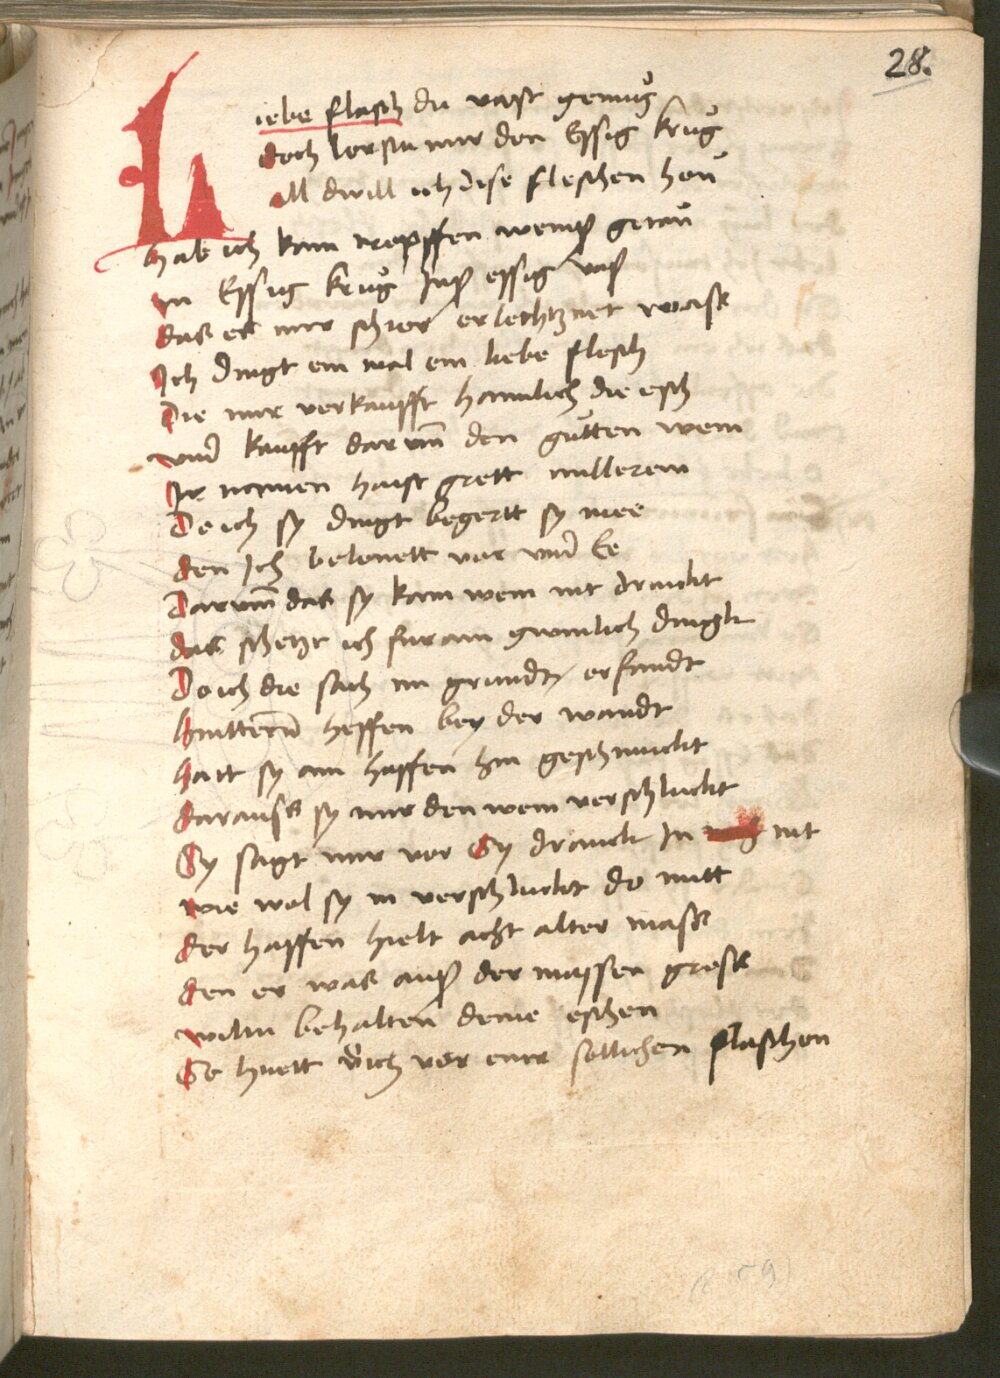 28.
Liebe flasch du vast genug
doch lerstu mir den Essig krug
all dwill ich dise fleschen hon
hab ich kam tropffen weins geton
In Essig krug Ins essig vas
das es mir schier erlechznet was
Ich dingt ein mal ein liebe flesch
Die mir verkaufft haimlich die esch
vnd kaufft darum den gutten wein
Ir namen haist grett millerein
Do ich sy dingt begertt sy mee
den Ich belonett vor vnd Ee
Darum das sy kain wein nit drinckt
das schetzt ich fur ain gwinlich dingk
Do ich die sach im grundt erfandt
hindern heffen bey der wandt
hatt sy ain haffen hin geschmuckt
darauss sy mir den wein verschluckt
Sy sagt mir vor Sy dranck In nit
wie wol sy in verschluckt do mitt
der haffen hielt acht alter mass
den er was auss der massen gross
wiltu behalten deine eschen
So huett dich vor einer sollichen flaschen